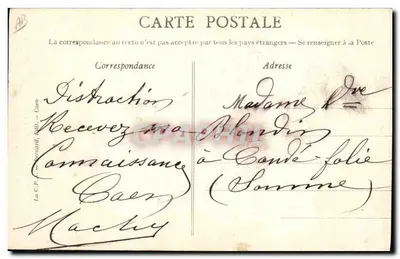 AB
CARTE POSTALE
La correspondance au recto n'est pas acceptée par tous les pays étrangers — Se renseigner à la Poste
Correspondance
Distraction
Recevez
Connaissance
Caen
Adresse
Madame Vve
Blondin
à Condé-folie
(Somme)